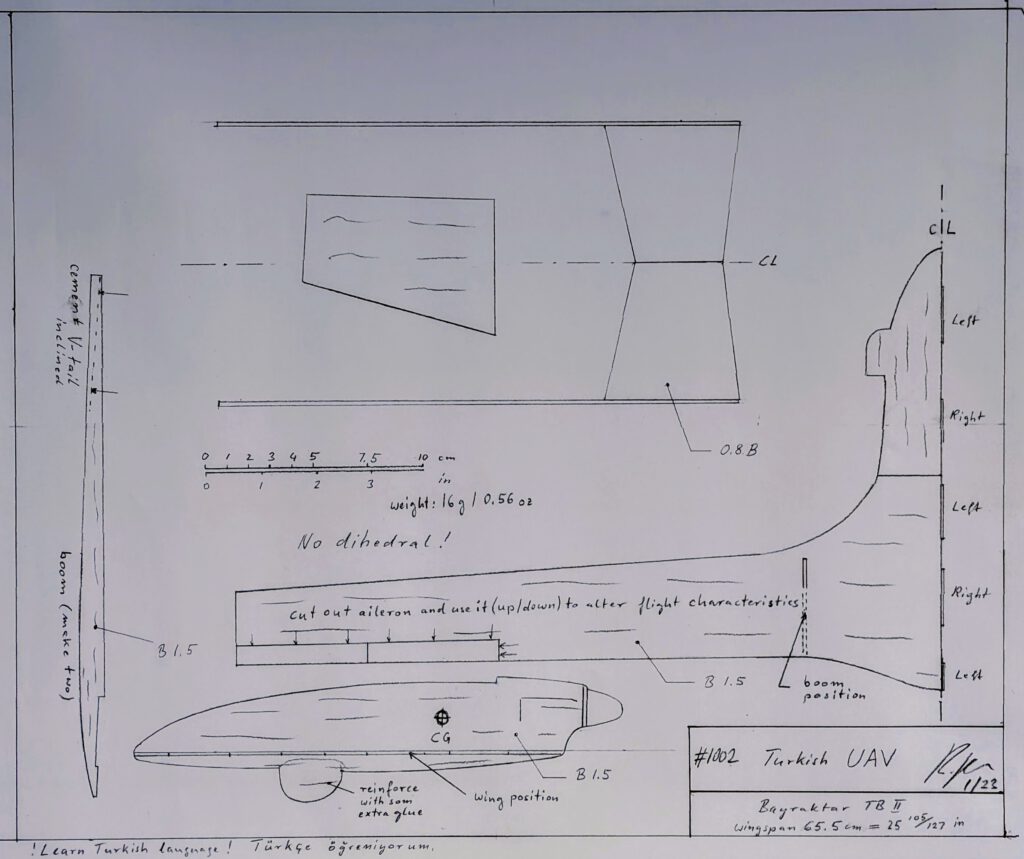 CL
Left
CL
cement V-tail
inclined
Right
0.8 B
0 1 2 3 4 5 7,5 10 cm
0 1 2 3 in
weight: 16g / 0.56 oz
Left
No dihedral!
boom (make two)
cut out aileron and use it (up/down) to alter flight characteristics
Right
B 1.5
B 1.5
boom
position
Left
CG
B 1.5
reinforce
with som
extra glue
wing position
#1002 Turkish UAV
1/23
Bayraktar TB II
wingspan 65.5 cm = 25 105/127 in
!Learn Turkish language! Türkçe öğreniyorum.